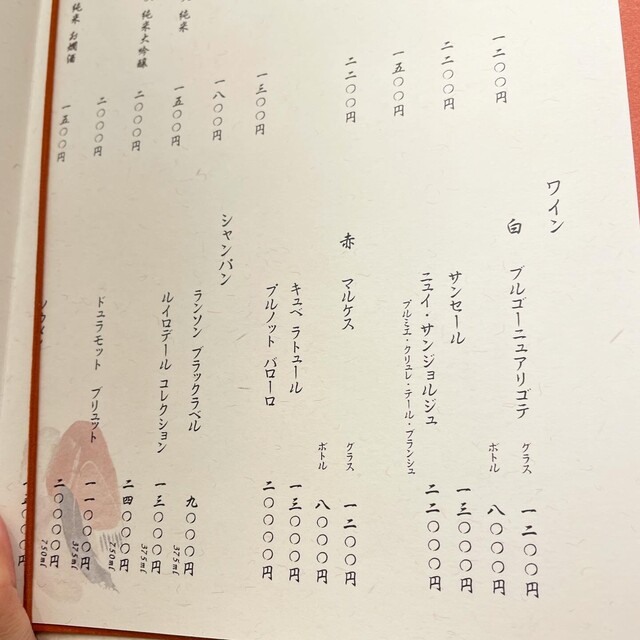 一二〇〇円
二二〇〇円
一五〇〇円
二二〇〇円
一三〇〇円
一八〇〇円
純米
一五〇〇円
純米大吟醸
二〇〇〇円
二〇〇〇円
純米 お燗酒
一五〇〇円
ワイン
白 ブルゴーニュアリゴテ グラス 一二〇〇円
ボトル 八〇〇〇円
サンセール 一三〇〇〇円
ニュイ・サンジョルジュ 二二〇〇〇円
プルミエ・クリュレ・テール・ブランシュ
赤 マルケス グラス 一二〇〇円
ボトル 八〇〇〇円
キュベ ラトュール 一三〇〇〇円
ブルノット バローロ 二〇〇〇〇円
シャンパン
ランソン ブラックラベル 375ml 九〇〇〇円
ルイロデール コレクション 375ml 一三〇〇〇円
750ml 二四〇〇〇円
ドュラモット ブリュット 375ml 一一〇〇〇円
750ml 二〇〇〇〇円